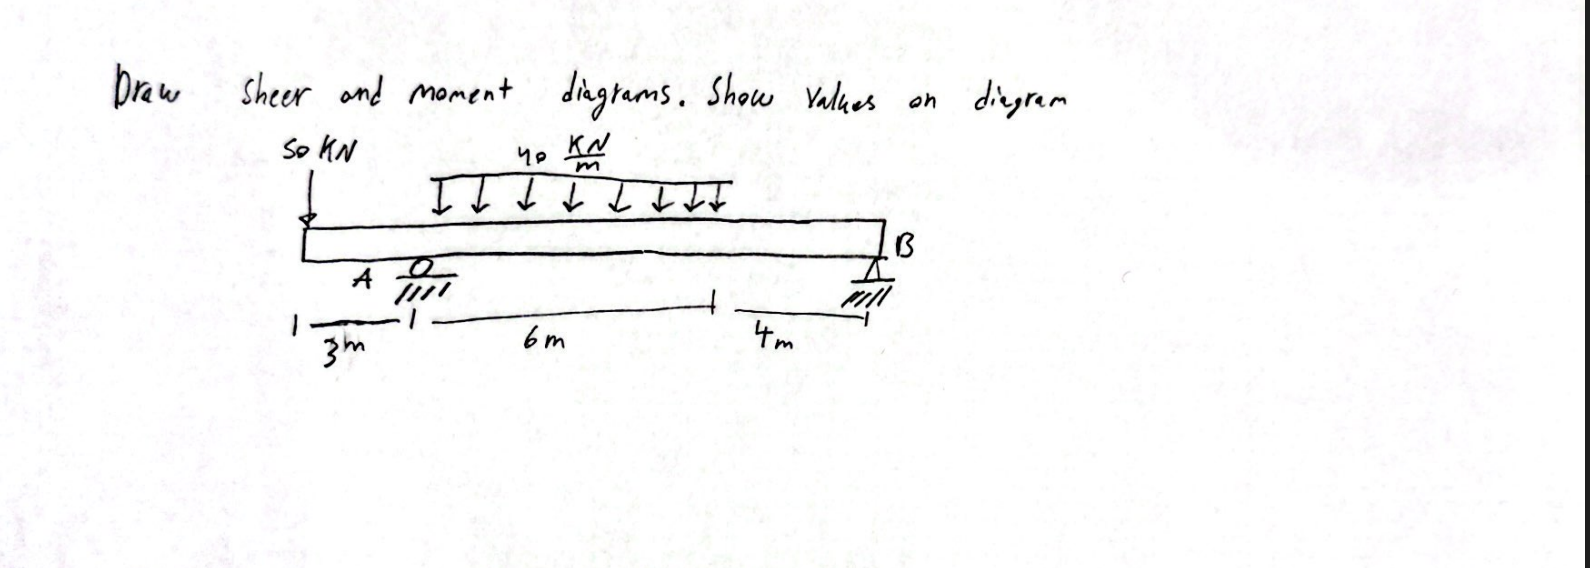 Draw Sheer and moment diagrams. Show Values on diagram
50 KN
40 KN/m
A
B
3m
6m
4m